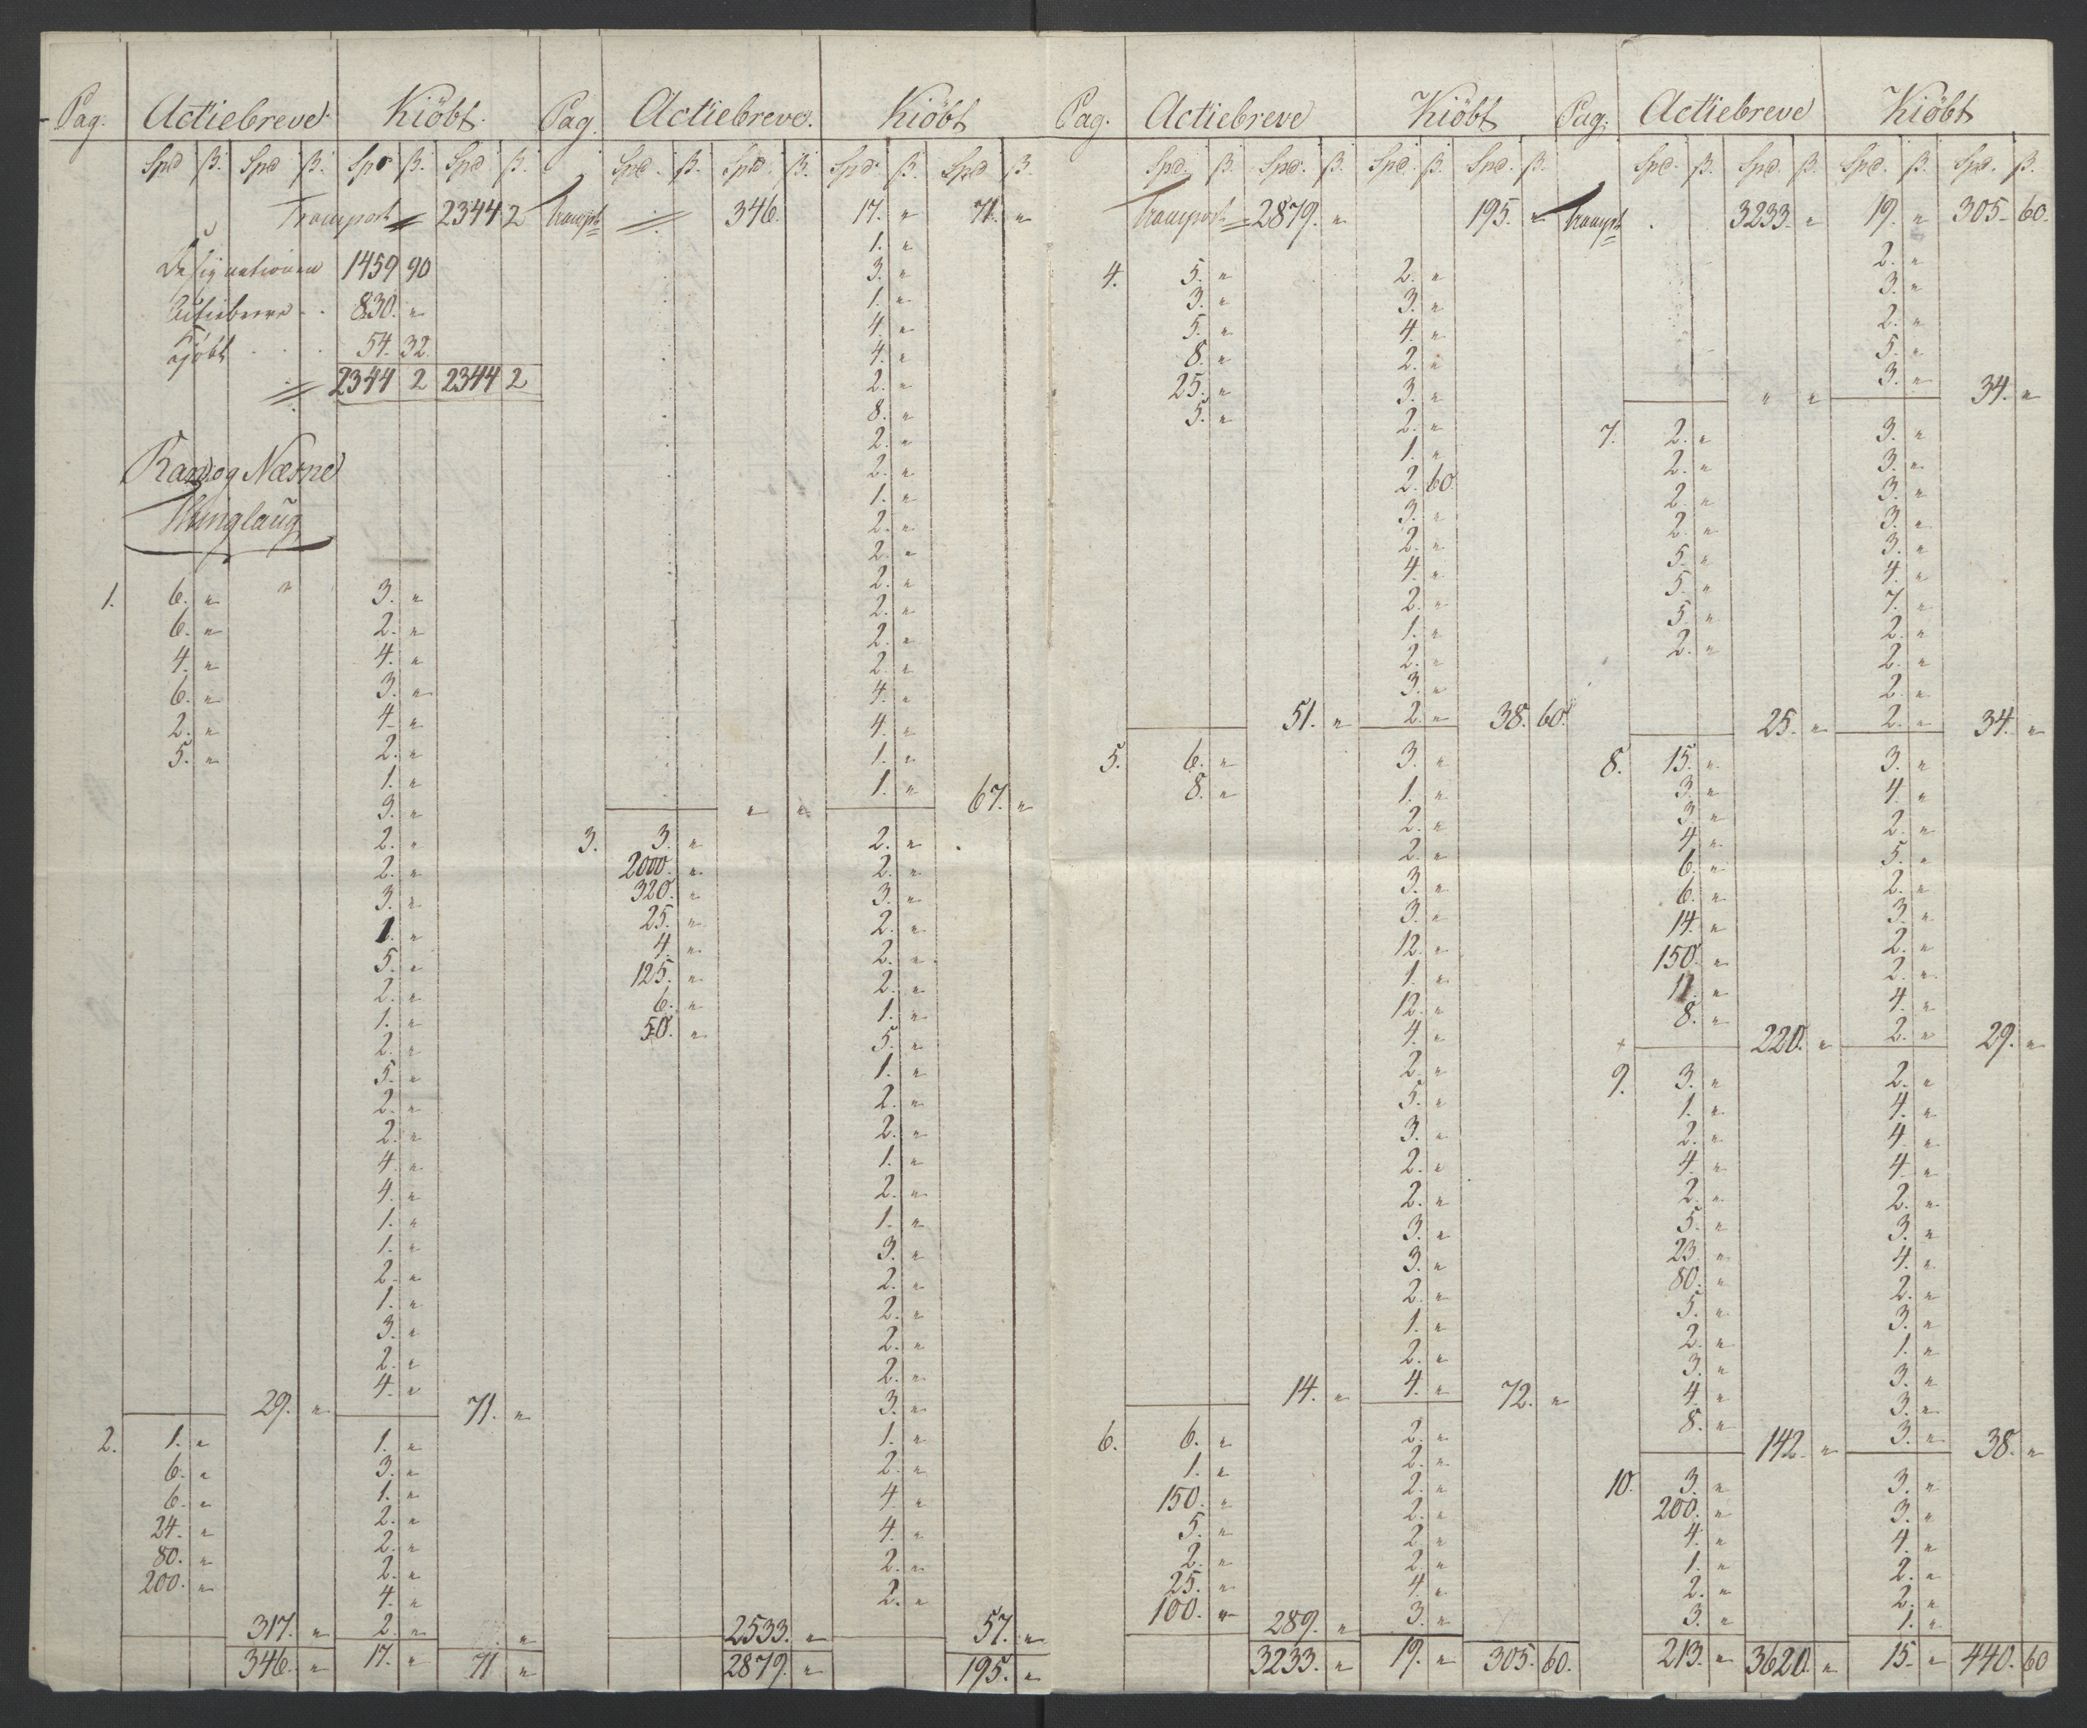 Pag. Actiebreve Kiöbt.
Spd ß. Spd ß. Spd ß. Spd ß.
Transport 2344 2
Designationen 1459 90
Actiebreve . . 830. "
Kjöbt . . . . 54. 32.
2344 2 2344 2
Ran og Næsne
Thinglaug
1. 6. " 3. "
6. " 2. "
4. " 4. "
6. " 3. "
2. " 4. "
5. " 2. "
1. "
3. "
2. "
2. "
3. "
1. "
5. "
2. "
1. "
2. "
5. "
2. "
2. "
4. "
4. "
1. "
1. "
2. "
1. "
3. "
2. "
4. "
29. " 71. "
2. 1. " 1. "
6. " 3. "
6. " 1. "
24. " 2. "
80. " 2. "
200. " 2. "
4. "
317. " 2. " "
346. " 17. " 71 "
Pag. Actiebreve. Kiöbt
Spd. ß. Spd. ß. Spd. ß. Spd ß.
Transpt 346. 17. " 71. "
1. "
3. "
1. "
4. "
4. "
2. "
8. "
2. "
2. "
1. "
2. "
2. "
2. "
2. "
2. "
2. "
4. "
4. "
1. "
1. " 67. "
" "
3. 3. " 2. "
2000. " 2. "
320. " 3. "
25. " 2. "
4. " 2. "
125. " 2. "
6. " 1. "
50. " 5. "
1. "
2. "
2. "
1. "
2. "
1. "
3. "
2. "
2. "
2. "
2. "
3. "
1. "
2. "
4. "
4. "
2. "
2. "
2533. " 57. "
2879. " 195. "
Pag. Actiebreve Kiöbt
Spd. ß. Spd. ß. Spd. ß. Spd. ß.
Transport 2879. " 195. "
4. 5. " 2. "
3. " 3. "
5. " 4. "
8. " 2. "
25. " 3. "
5. " 2. "
1. "
2. 60.
3. "
2. "
4. "
2. "
1. "
2. "
3. "
51. " 2. " 38. 60.
5. 6. " 3. "
8. " 1. "
2. "
2. "
3. "
3. "
12. "
1. "
12. "
4. "
2. "
5. "
3. "
2. "
2. "
3. "
3. "
2. "
1. "
2. "
14. " 4. " 72. "
6. 6. " 2. "
1. " 2. "
150. " 2. "
5. " 2. "
2. " 2. "
25. " 2. "
100. " 4. "
289. " 3. "
3233. " 19. " 305. 60.
Pag. Actiebreve Kiöbt
Spd. ß. Spd. ß. Spd. ß. Spd. ß.
Transpt . 3233. " 19. " 305. 60.
2. "
3. "
2. "
5. "
3. "
" " 34. "
7. 2. " 3. "
2. " 3. "
2. " 3. "
2. " 3. "
5. " 3. "
5. " 4. "
5. " 7. "
2. " 2. "
2. "
2. "
25. " 2. " 34. "
8. 15. " 3. "
3. " 4. "
3. " 2. "
4. " 5. "
6. " 2. "
6. " 3. "
14. " 2. "
150. " 2. "
11. " 4. "
8. " 2. "
220. " 29. "
9. 3. " 2. "
1. " 4. "
2. " 4. "
4. " 4. "
2. " 2. "
5. " 3. "
23. " 4. "
80. " 2. "
5. " 3. "
2. " 1. "
3. " 3. "
4. " 3. "
8. " 3. "
142. " 38. "
10. 3. " 3. "
200. " 3. "
4. " 4. "
1. " 2. "
2. " 2. "
3. " 1. "
213. " 3620. " 15. " 440. 60